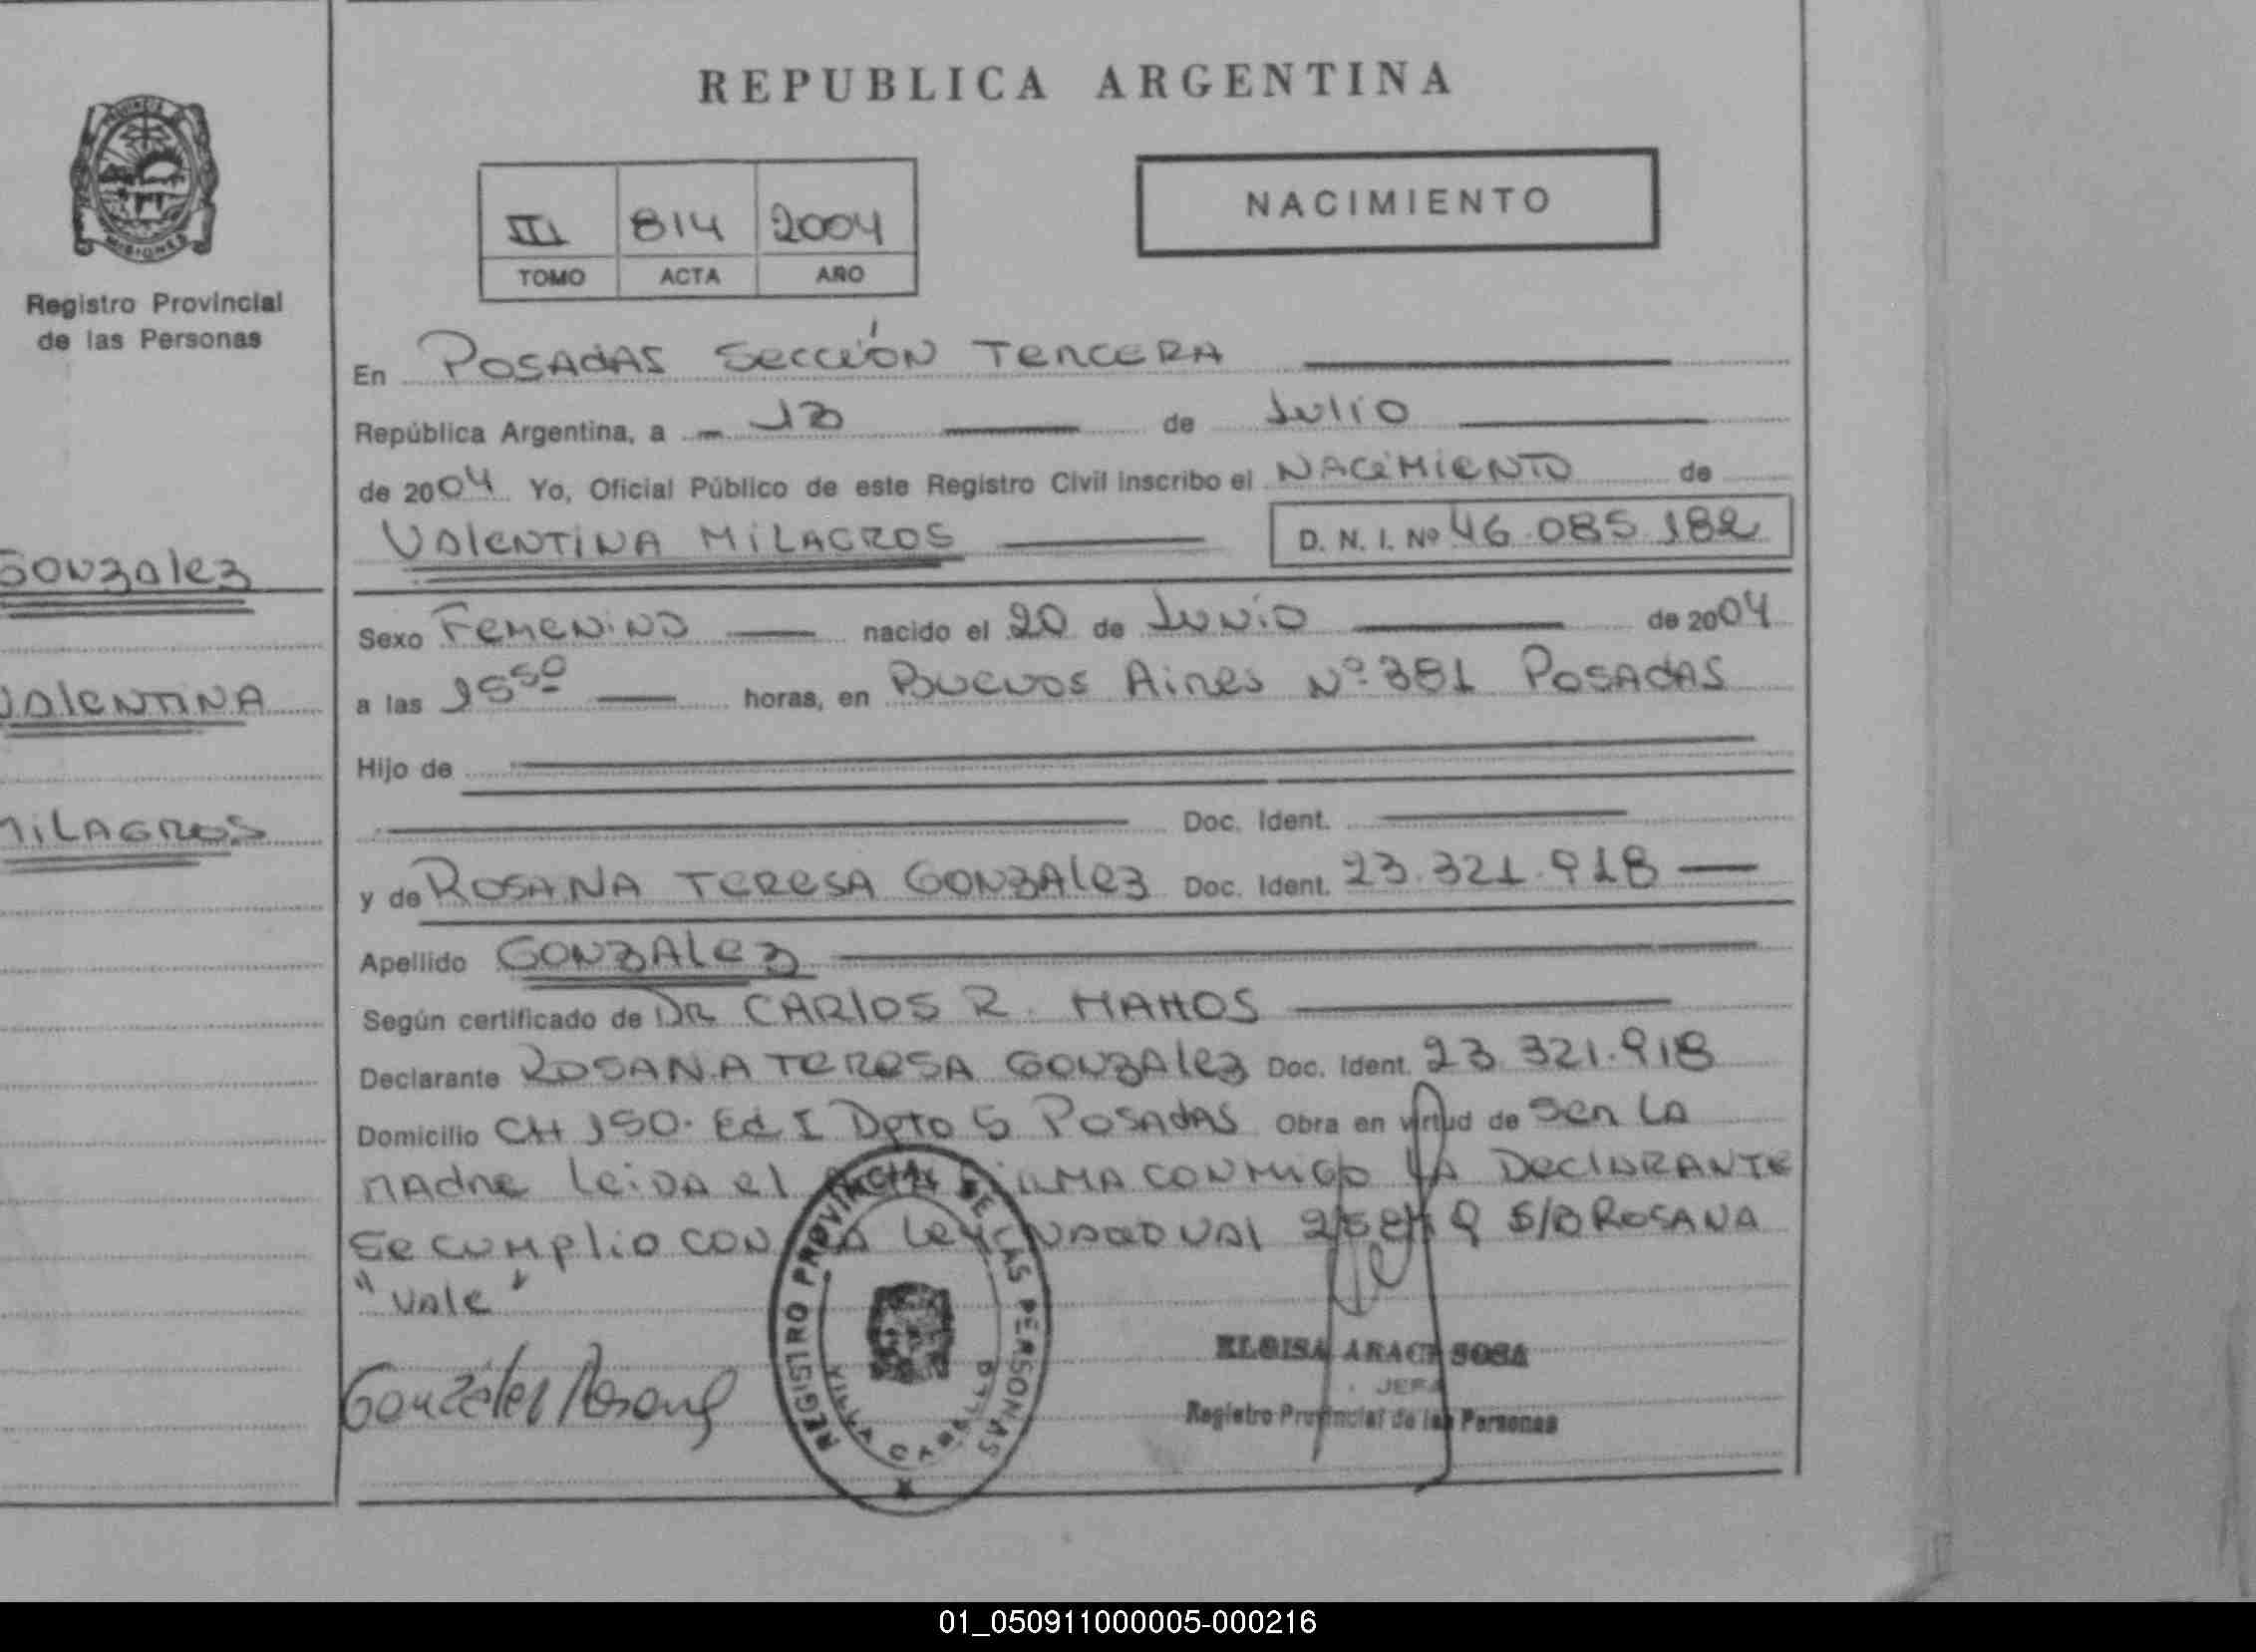 REPUBLICA ARGENTINA
PROVINCIA MISIONES
Registro Provincial
de las Personas
III 814 2004
TOMO ACTA AÑO
NACIMIENTO
Gonzalez
VALENTINA
MILAGROS
En POSADAS SECCIÓN TERCERA
República Argentina, a - 13 de Julio
de 2004 Yo, Oficial Público de este Registro Civil inscribo el NACIMIENTO de
VALENTINA MILAGROS D. N. I. Nº 46.085.182
Sexo FEMENINO nacido el 20 de JUNIO de 2004
a las 15 50 horas, en BUENOS Aires Nº 381 POSADAS
Hijo de
Doc. Ident.
y de ROSANA TERESA GONZALEZ Doc. Ident. 23.321.918
Apellido GONZALEZ
Según certificado de DR CARLOS R.
Declarante ROSANA TERESA GONZALEZ Doc. Ident. 23.321.918
Domicilio CH 150. Ed. I Dpto 5 POSADAS Obra en virtud de ser la
madre Leida el FIRMA CONMIGO LA DECLARANTE
Se cumplio con LA Ley NACIONAL S/B ROSANA
"Vale"
González Rosana
REGISTRO PROVINCIAL DE LAS PERSONAS
VILLA CABELLO
ELOISA SOSA
JEFA
Registro Provincial de las Personas
01_050911000005-000216